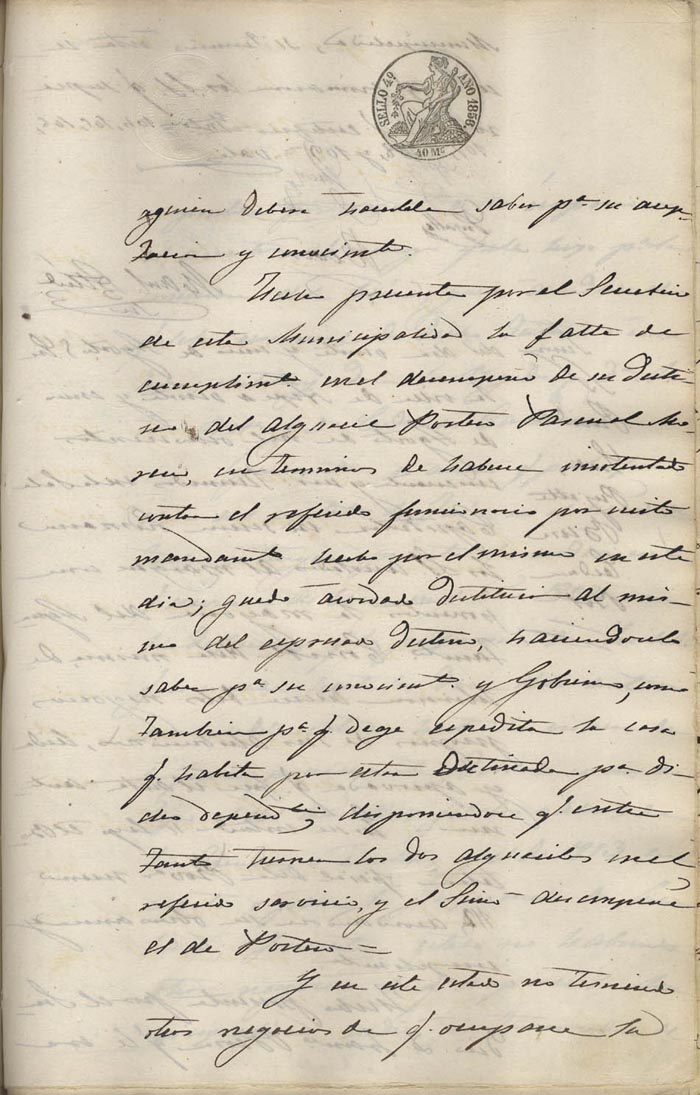 SELLO 4º AÑO 1858.
40 Ms
aquien debera hacersele saber pª. su acep-
tacion y conocimtº.
Hizose presente por el Secretario
de esta Municipalidad la falta de
cumplimtº. en el desempeño de su desti-
no, del alguacil Portero Pascual Mo-
reno, en terminos de haberse insolentado
contra el referido funcionario por cierto
mandamtº hecho por el mismo en este
dia; quedó acordado destituir al mis-
mo del espresado destino, haciendosele
saber pª. su conocimtº. y Gobierno, como
tambien pª. q. deje expedita la casa
q. habita por estar destinada pª. di-
cho dependte; disponiendose q. entre
tanto turnen los dos alguaciles en el
referido servicio, y el desempeñe
el de Portero =
Y en este estado no teniendo
otros negocios de q. ocuparse la